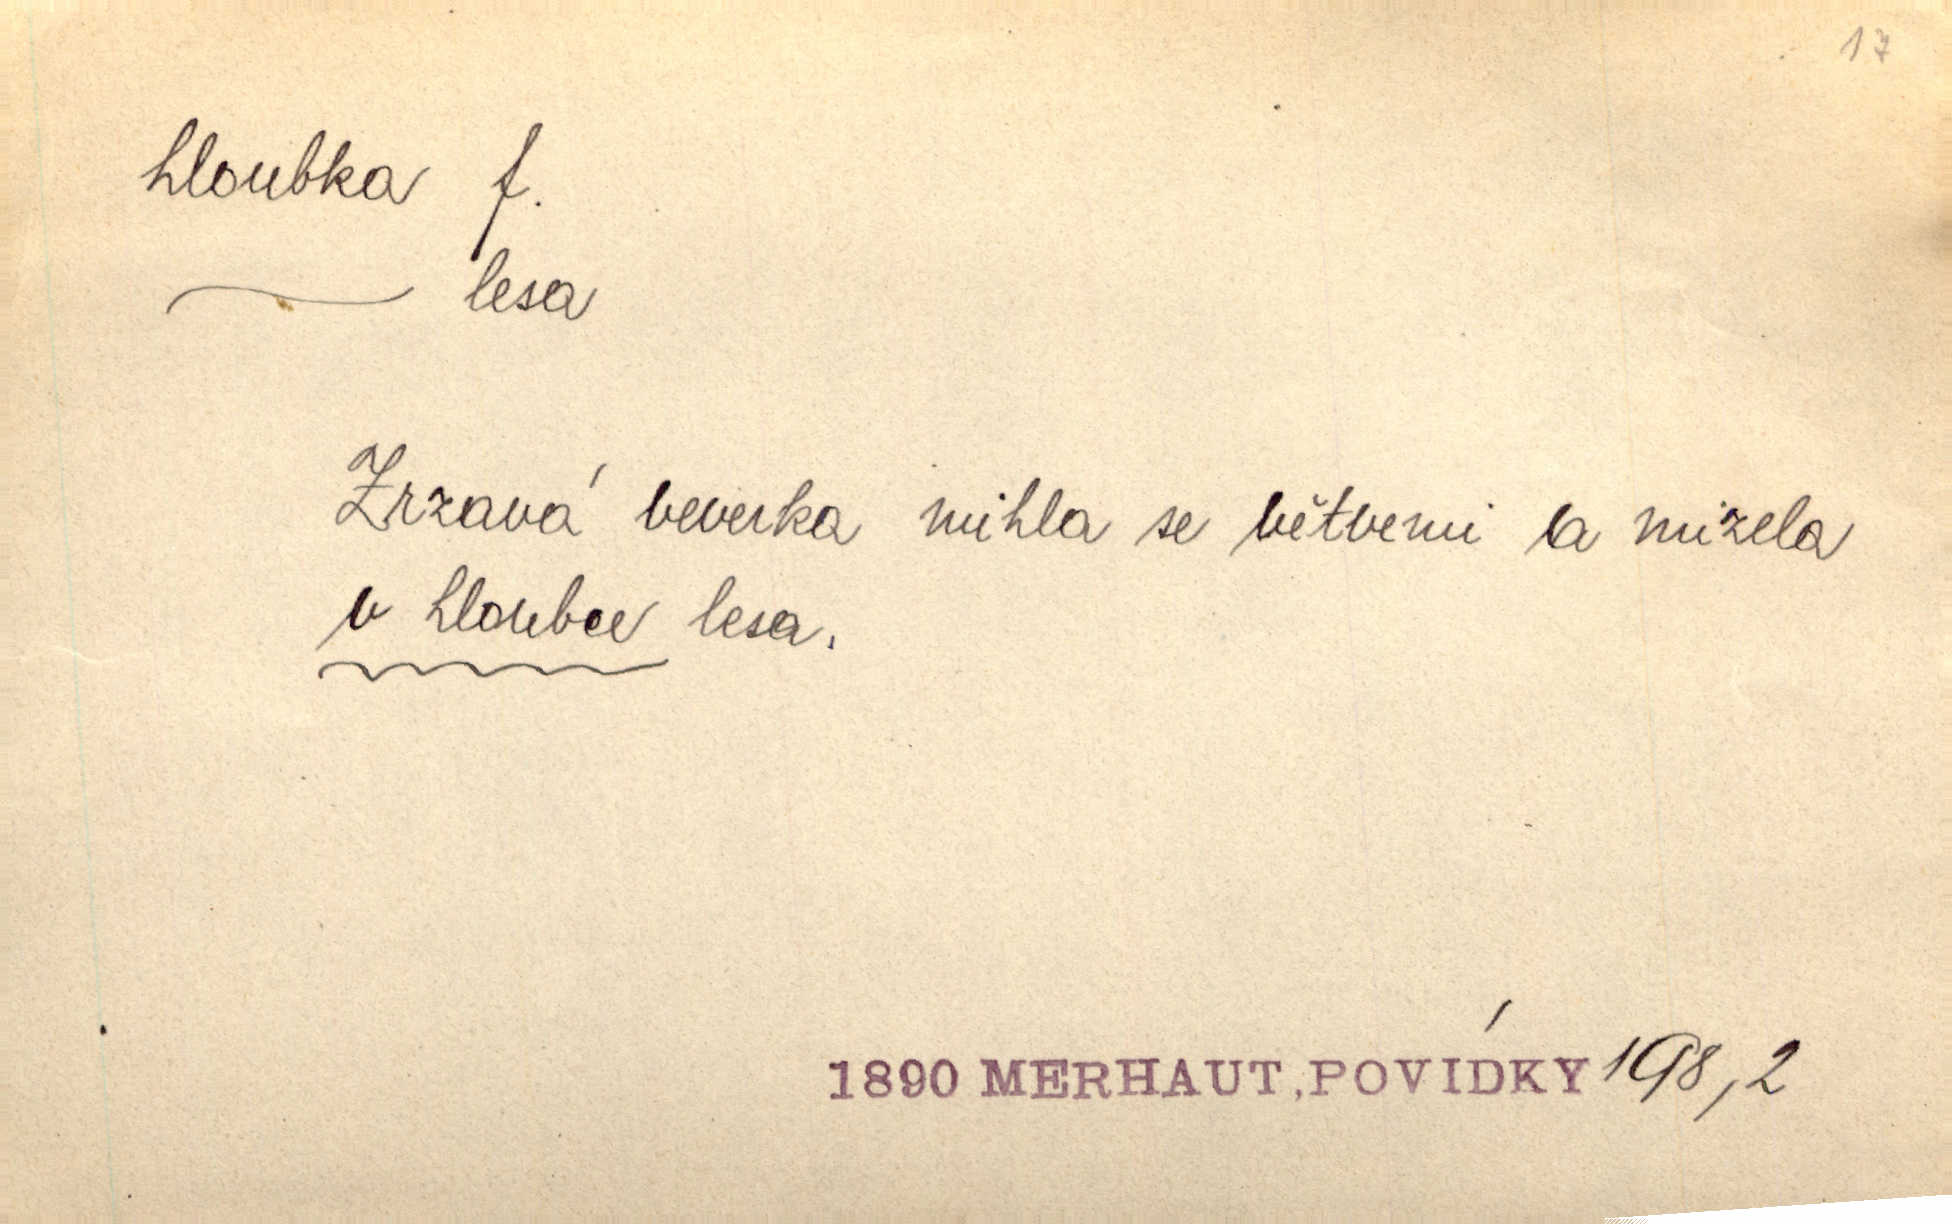 17
hloubka f.
lesa
Zrzavá veverka mihla se větvemi a mizela
v hloubce lesa.
1890 MERHAUT, POVÍDKY 198, 2